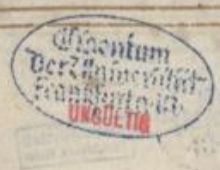 Eigentum
der Universität
Frankfurt a. M.
UNGÜLTIG